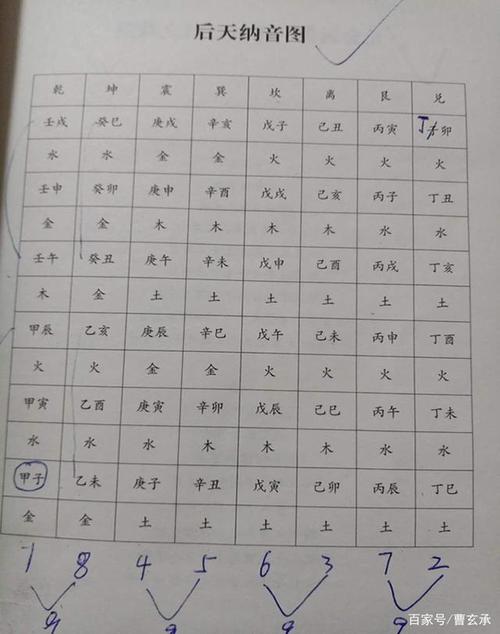 后天纳音图
乾 坤 震 巽 坎 离 艮 兑
壬戌 癸巳 庚戌 辛亥 戊子 己丑 丙寅 丁卯
水 水 金 金 火 火 火 火
壬申 癸卯 庚申 辛酉 戊戌 己亥 丙子 丁丑
金 金 木 木 木 木 水 水
壬午 癸丑 庚午 辛未 戊申 己酉 丙戌 丁亥
木 金 土 土 土 土 土 土
甲辰 乙亥 庚辰 辛巳 戊午 己未 丙申 丁酉
火 火 金 金 火 火 火 火
甲寅 乙酉 庚寅 辛卯 戊辰 己巳 丙午 丁未
水 水 木 木 木 木 水 水
甲子 乙未 庚子 辛丑 戊寅 己卯 丙辰 丁巳
金 金 土 土 土 土 土 土
1 8 4 5 6 3 7 2
9 9 9 9
百家号/曹玄承